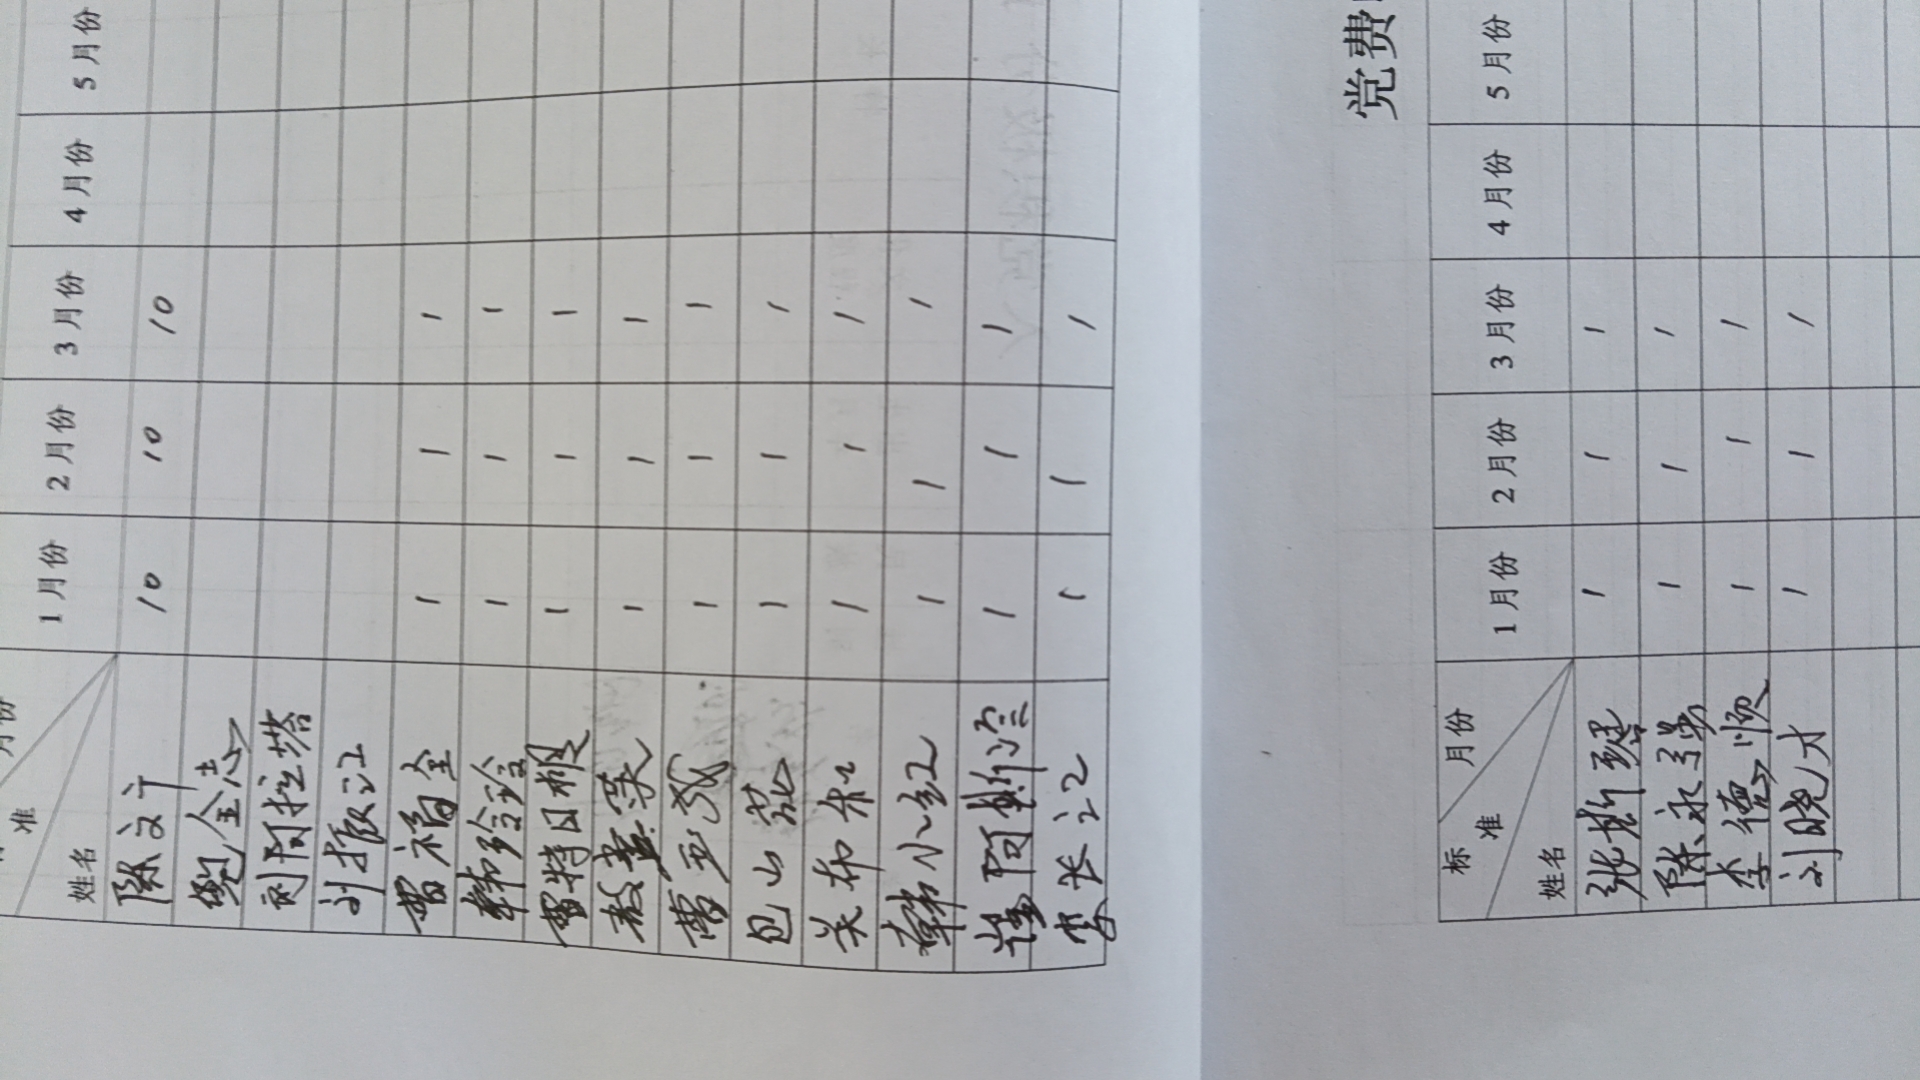 月份
准
姓名 1月份 2月份 3月份 4月份 5月份
陈文 10 10 10
倪金志
刘阿拉塔
刘振江
曹福全 1 1 1
韩玲玲 1 1 1
曹特日根 1 1 1
敖 1 1 1
1 1 1
包山花 1 1 1
关布和 1 1 1
韩小红 1 1 1
阿斯 1 1 1
长江 1 1 1
党费
标准 月份
姓名 1月份 2月份 3月份 4月份 5月份
张 1 1 1
陈永 1 1 1
李德顺 1 1 1
刘晓才 1 1 1